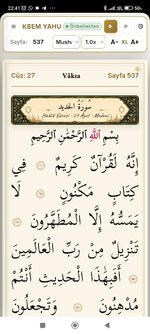 22:41
KBEM YAHU
Önbellekten
Sayfa: 537 Mush 1.0x A- XL A+
Cüz: 27 Vâkıa Sayfa 537
سُورَةُ الْحَدِيدِ
Hadîd Sûresi · 29 Ayet · Medenî
بِسْمِ اللَّهِ الرَّحْمَٰنِ الرَّحِيمِ
إِنَّهُ لَقُرْآنٌ كَرِيمٌ فِي
كِتَابٍ مَكْنُونٍ لَا
يَمَسُّهُ إِلَّا الْمُطَهَّرُونَ
تَنْزِيلٌ مِنْ رَبِّ الْعَالَمِينَ
أَفَبِهَٰذَا الْحَدِيثِ أَنْتُمْ
مُدْهِنُونَ وَتَجْعَلُونَ